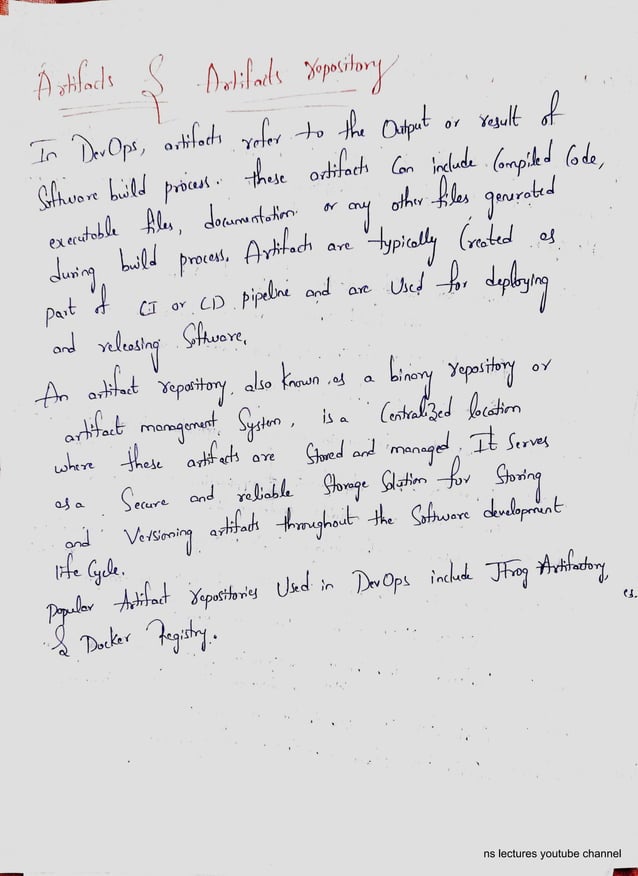 Artifacts & Artifacts repository
In DevOps, artifacts refer to the Output or result of
Software build process. these artifacts Can include Compiled Code,
executable files, documentation or any other files generated
during build process. Artifacts are typically Created as
part of CI or CD pipeline and are Used for deploying
and releasing Software.
An artifact repository. also known as a binary repository or
artifact management System, is a Centralized location
where these artifacts are Stored and managed. It Serves
as a Secure and reliable Storage Solution for Storing
and Versioning artifacts throughout the Software development
life Cycle.
Popular Artifact repositories Used in DevOps include JFrog Artifactory,
& Docker Registry.
ns lectures youtube channel